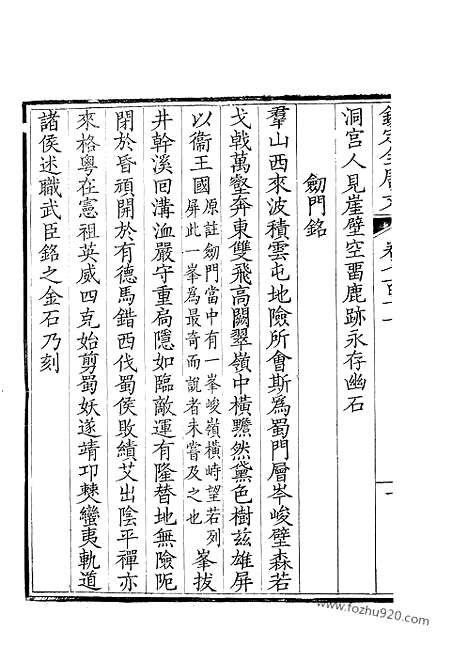 欽定全唐文　卷七百十一
洞宫人見崖壁空畱鹿跡永存幽石
劒門銘
羣山西來波積雲屯地險所會斯爲蜀門層岑峻壁森若
戈戟萬壑奔東雙飛高闕翠嶺中橫黯然黛色樹茲雄屏
以衞王國原註劒門當中有一峯峻嶺橫峙望若列屏此一峯爲最奇而說者未嘗及之也峯拔
井幹溪回溝洫嚴守重扃隱如臨敵運有隆替地無險阨
閉於昏頑開於有德馬錯西伐蜀侯敗績艾出陰平禪亦
來格粤在憲祖英威四克始剪蜀妖遂靖邛僰蠻夷軌道
諸侯述職武臣銘之金石乃刻
www.fozhu920.com